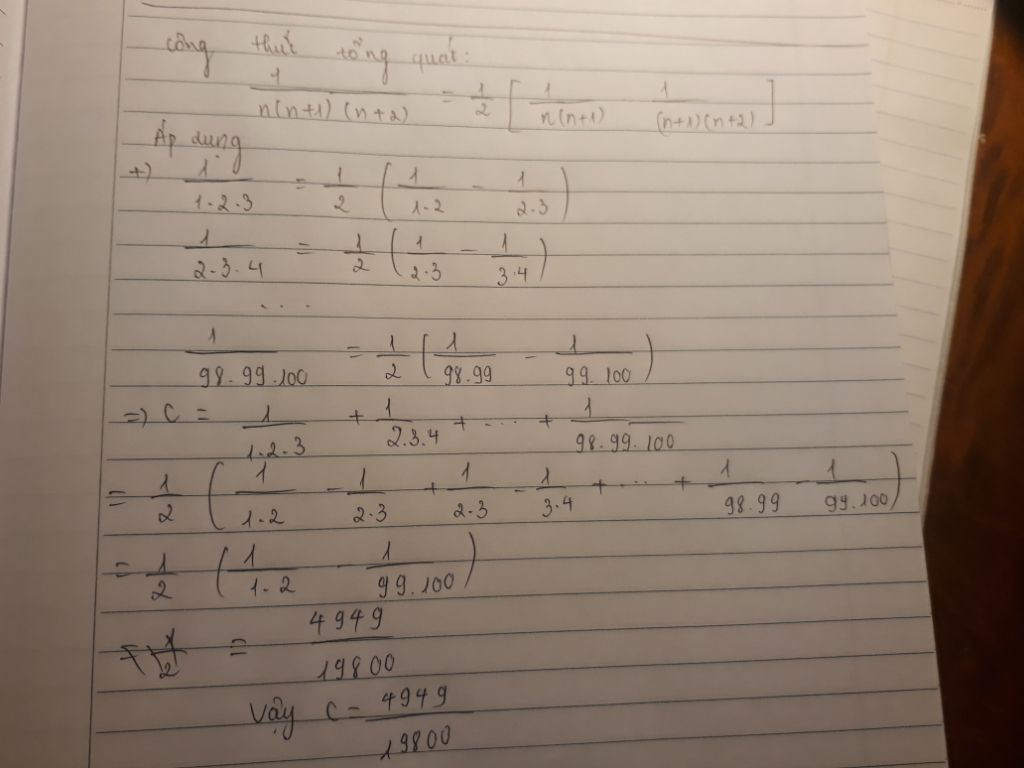 công thức tổng quát:
1/(n(n+1)(n+2)) = 1/2 [ 1/(n(n+1)) - 1/((n+1)(n+2)) ]
Áp dụng
+) 1/(1.2.3) = 1/2 ( 1/(1.2) - 1/(2.3) )
1/(2.3.4) = 1/2 ( 1/(2.3) - 1/(3.4) )
....
1/(98.99.100) = 1/2 ( 1/(98.99) - 1/(99.100) )
=) C = 1/(1.2.3) + 1/(2.3.4) + ... + 1/(98.99.100)
= 1/2 ( 1/(1.2) - 1/(2.3) + 1/(2.3) - 1/(3.4) + ... + 1/(98.99) - 1/(99.100) )
= 1/2 ( 1/(1.2) - 1/(99.100) )
= 4949/19800
Vậy C = 4949/19800